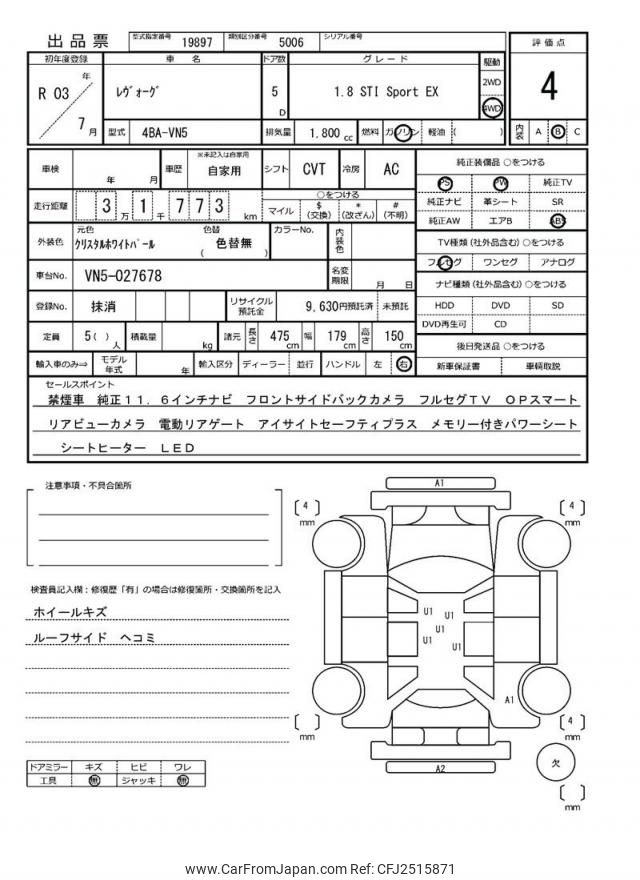 出品票 型式指定番号 19897 類別区分番号 5006 シリアル番号
初年度登録 車名 ドア数 グレード 駆動 評価点
R 03 年 7 月 ﾚｳﾞｫｰｸﾞ 5 D 1.8 STI Sport EX 2WD 4WD 4
型式 4BA-VN5 排気量 1,800 cc 燃料 ガソリン 軽油 ( ) 内装 A B C
車検 年 月 車歴 ※未記入は自家用 自家用 シフト CVT 冷房 AC 純正装備品 ○をつける
PS PW 純正TV
走行距離 3 万 1 千 7 7 3 km ○をつける
マイル $(交換) *(改ざん) #(不明)
純正ナビ 革シート SR
純正AW エアB ABS
外装色 元色 ｸﾘｽﾀﾙﾎﾜｲﾄﾊﾟｰﾙ 色替 ( 色替無 ) カラーNo. 内装色
TV種類(社外品含む) ○をつける
フルセグ ワンセグ アナログ
車台No. VN5-027678 名変期限 月 日
ナビ種類(社外品含む) ○をつける
登録No. 抹消 リサイクル預託金 9,630円預託済 未預託
HDD DVD SD
DVD再生可 CD
定員 5( ) 人 積載量 kg 諸元 長さ 475 cm 幅 179 cm 高さ 150 cm
後日発送品 ○をつける
輸入車のみ⇨ モデル年式 年 輸入区分 ディーラー 並行 ハンドル 左 右
新車保証書 車輌取説
セールスポイント
禁煙車 純正11.6インチナビ フロントサイドバックカメラ フルセグTV OPスマート
リアビューカメラ 電動リアゲート アイサイトセーフティプラス メモリー付きパワーシート
シートヒーター LED
注意事項・不具合箇所
検査員記入欄：修復歴「有」の場合は修復箇所・交換箇所を記入
ホイールキズ
ルーフサイド ヘコミ
ドアミラー キズ ヒビ ワレ
工具 無 ジャッキ 無
A1
4 mm
4 mm
U1
U1
U1
U1
U1
A1
mm
4 mm
A2
欠
mm
www.CarFromJapan.com Ref: CFJ2515871